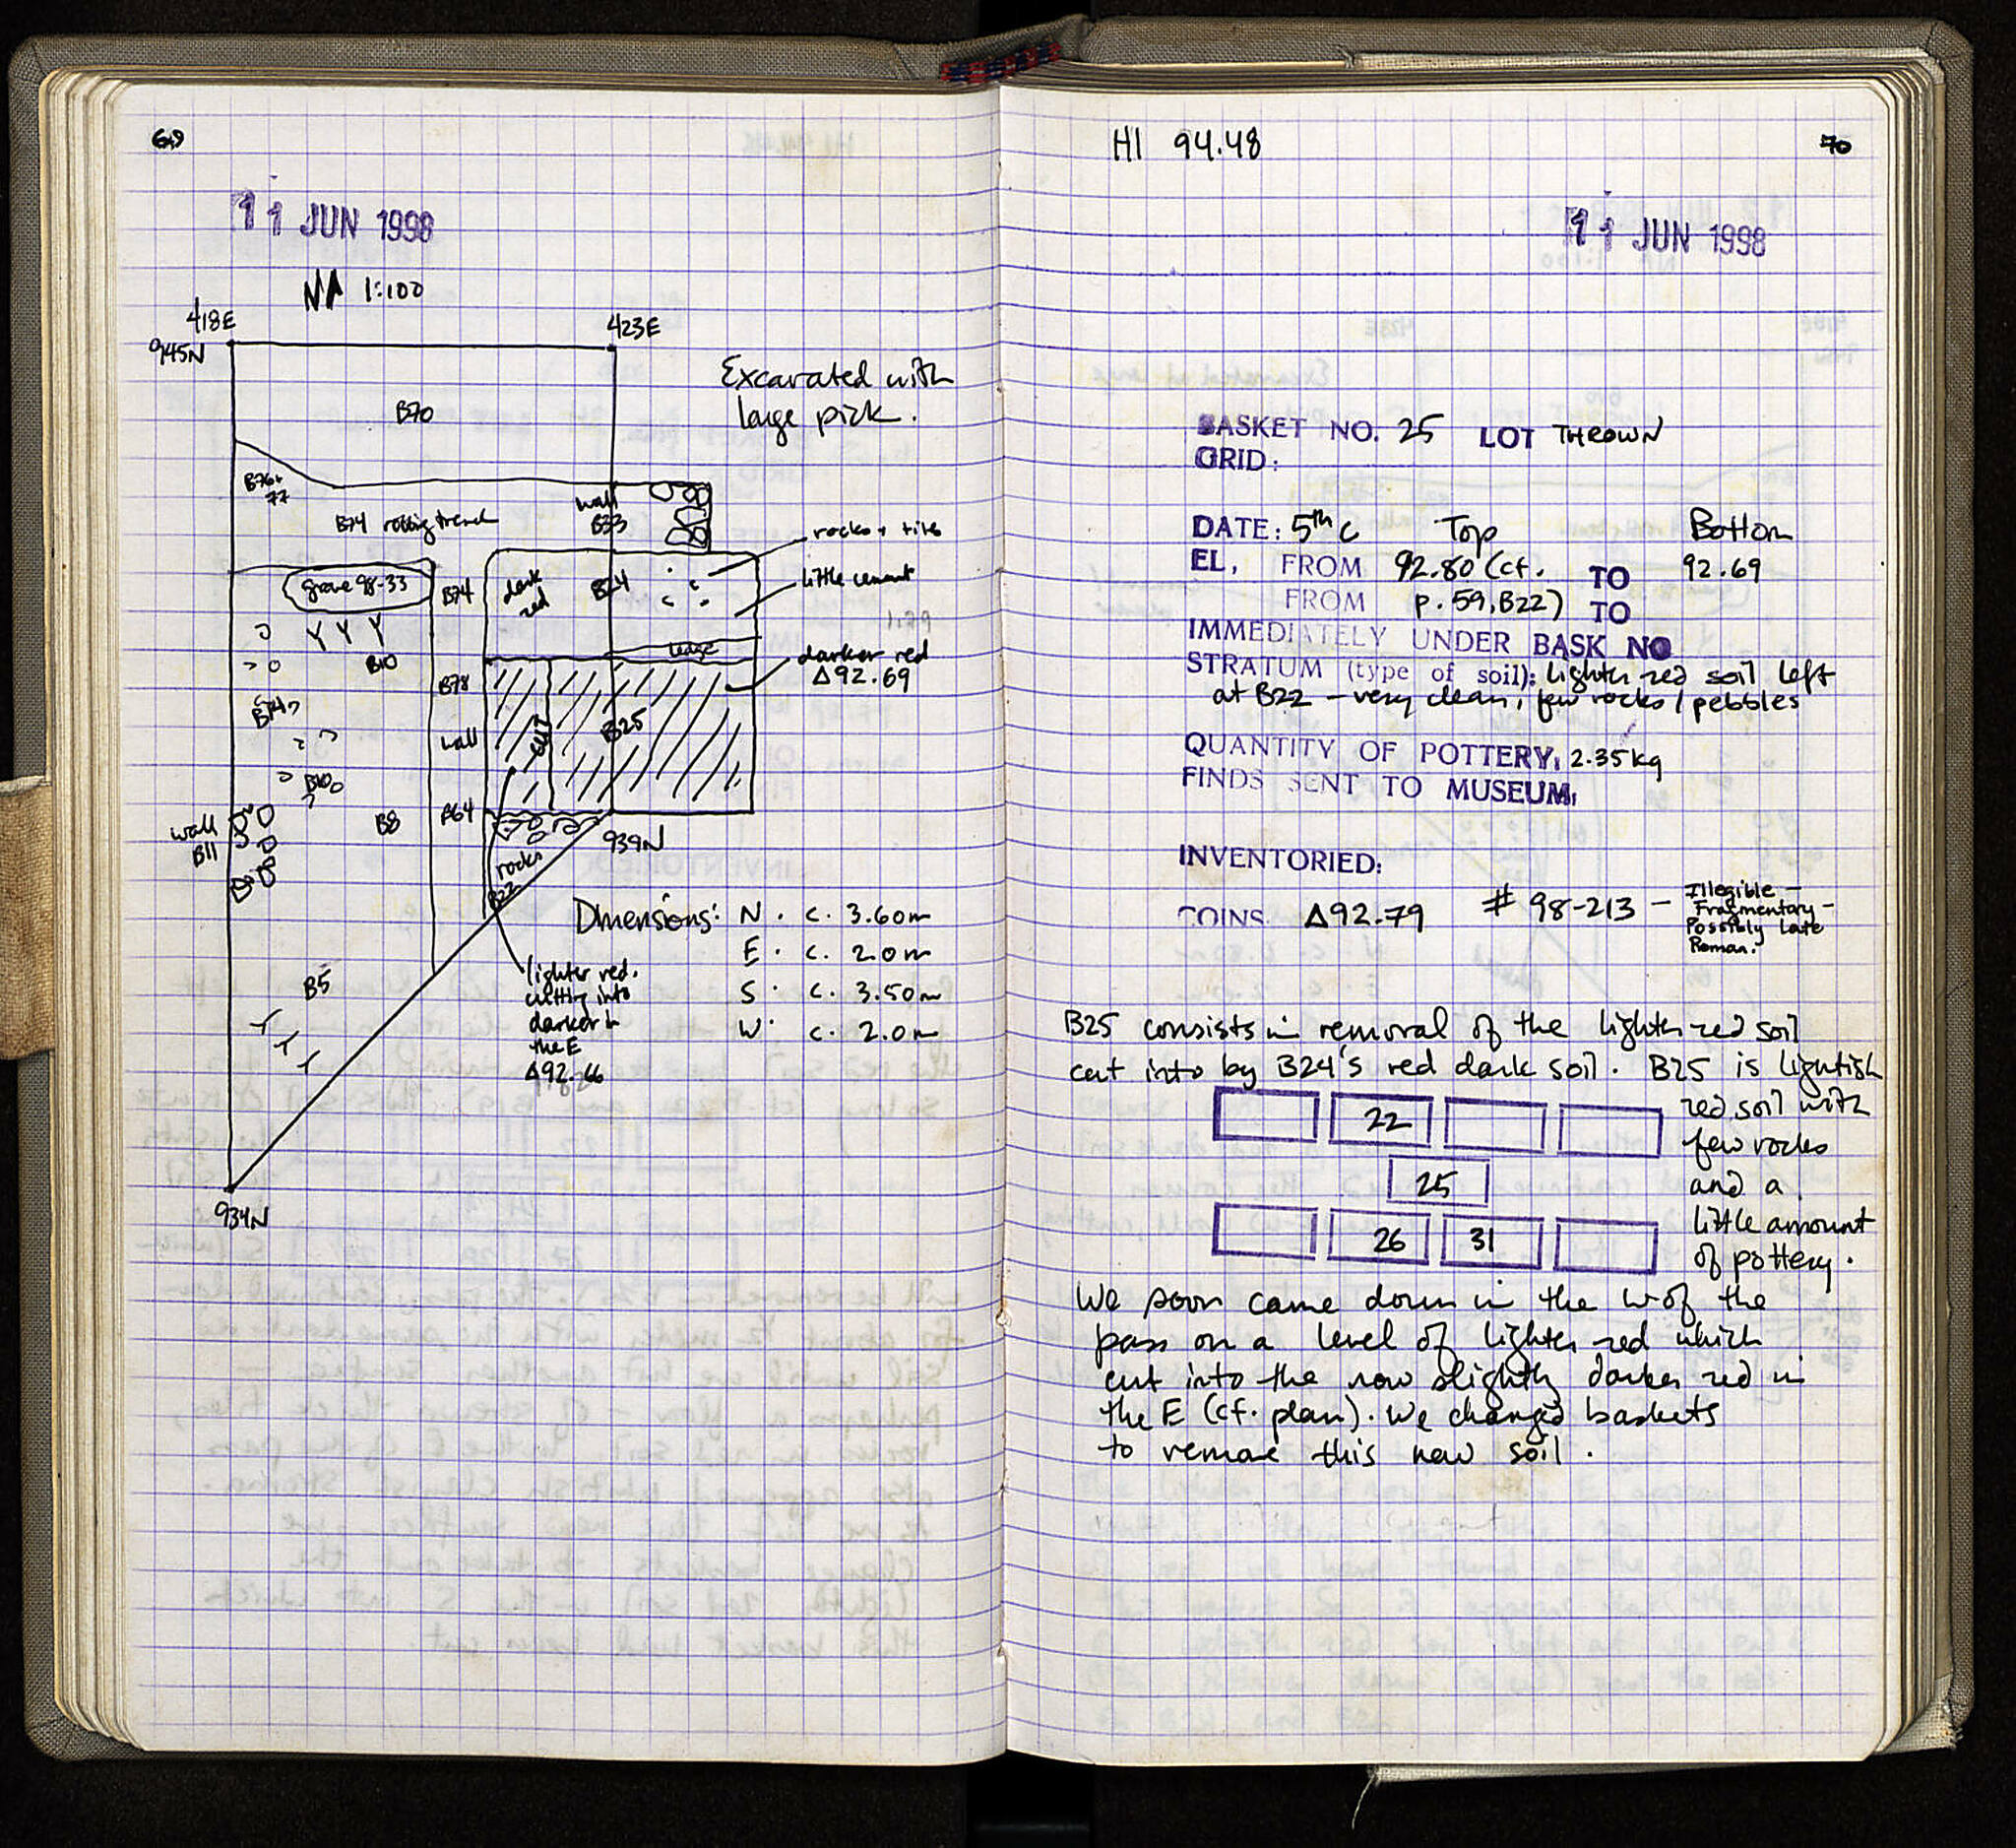 69
11 JUN 1998
1:100
418E
423E
945N
Excavated with
large pick.
B70
B76+
77
wall
B33
B74 robbing trench
rocks + tile
grave 98-33
B74
dark
red
B24
little cement
ledge
B10
darker red
Δ92.69
B78
B14
wall
cut
B25
B10
wall
B11
B8
B64
939N
rocks
B22
Dimensions: N. c. 3.60m
E. c. 2.0m
S. c. 3.50m
W. c. 2.0m
lighter red.
cutting into
darker in
the E
Δ92.66
B5
934N
H1 94.48
70
11 JUN 1998
BASKET NO. 25 LOT THROWN
GRID:
DATE: 5th c Top Bottom
EL. FROM 92.80 (cf. TO 92.69
FROM p. 59, B22) TO
IMMEDIATELY UNDER BASK NO
STRATUM (type of soil): lighter red soil left
at B22 – very clean, few rocks / pebbles
QUANTITY OF POTTERY, 2.35kg
FINDS SENT TO MUSEUM,
INVENTORIED:
COINS Δ92.79 # 98-213 – Illegible –
Fragmentary –
Possibly Late
Roman.
B25 consists in removal of the lighter red soil
cut into by B24's red dark soil. B25 is lightish
22 red soil with
few rocks
25 and a
little amount
26 31 of pottery.
We soon came down in the W of the
pass on a level of lighter red which
cut into the now slightly darker red in
the E (cf. plan). We changed baskets
to remove this new soil.